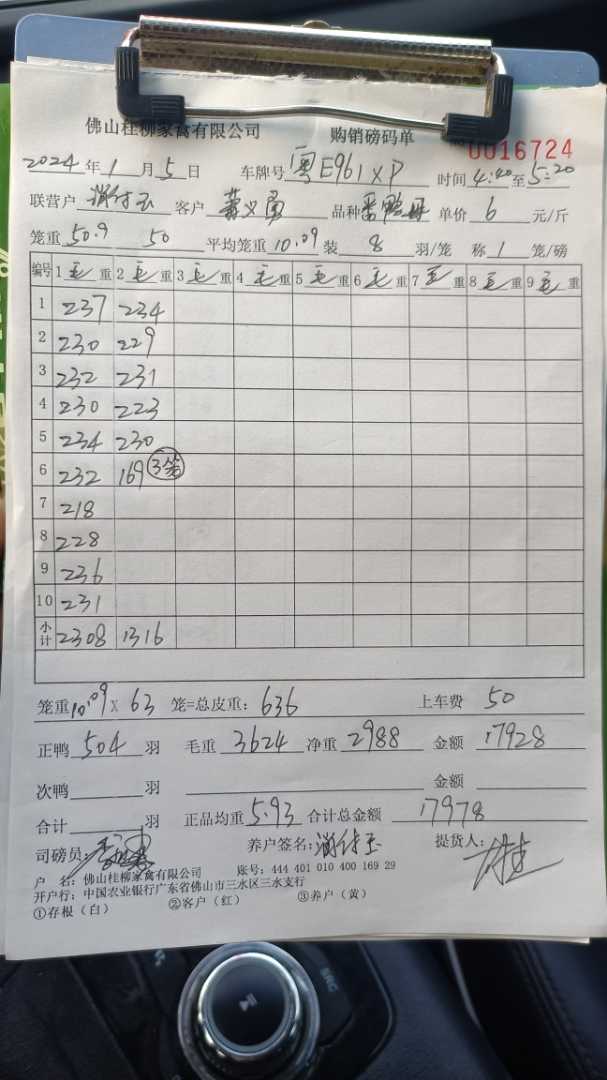 佛山桂柳家禽有限公司 购销磅码单 0016724
2024年1月5日 车牌号 粤E961XP 时间 4:40至5:20
联营户 客户 品种 单价 6 元/斤
笼重 50.9 50 平均笼重 10.09 装 8 羽/笼 称 1 笼/磅
编号 1毛重 2毛重 3毛重 4毛重 5毛重 6毛重 7毛重 8毛重 9毛重
1 237 234
2 230 229
3 232 231
4 230 223
5 234 230
6 232 169 3笼
7 218
8 228
9 236
10 231
小计 2308 1316
笼重 10.09 X 63 笼=总皮重: 636 上车费 50
正鸭 504 羽 毛重 3624 净重 2988 金额 17928
次鸭 羽 金额
合计 羽 正品均重 5.93 合计总金额 17978
司磅员: 养户签名: 提货人:
户 名: 佛山桂柳家禽有限公司 账号: 444 401 010 400 169 29
开户行: 中国农业银行广东省佛山市三水区三水支行
①存根（白） ②客户（红） ③养户（黄）